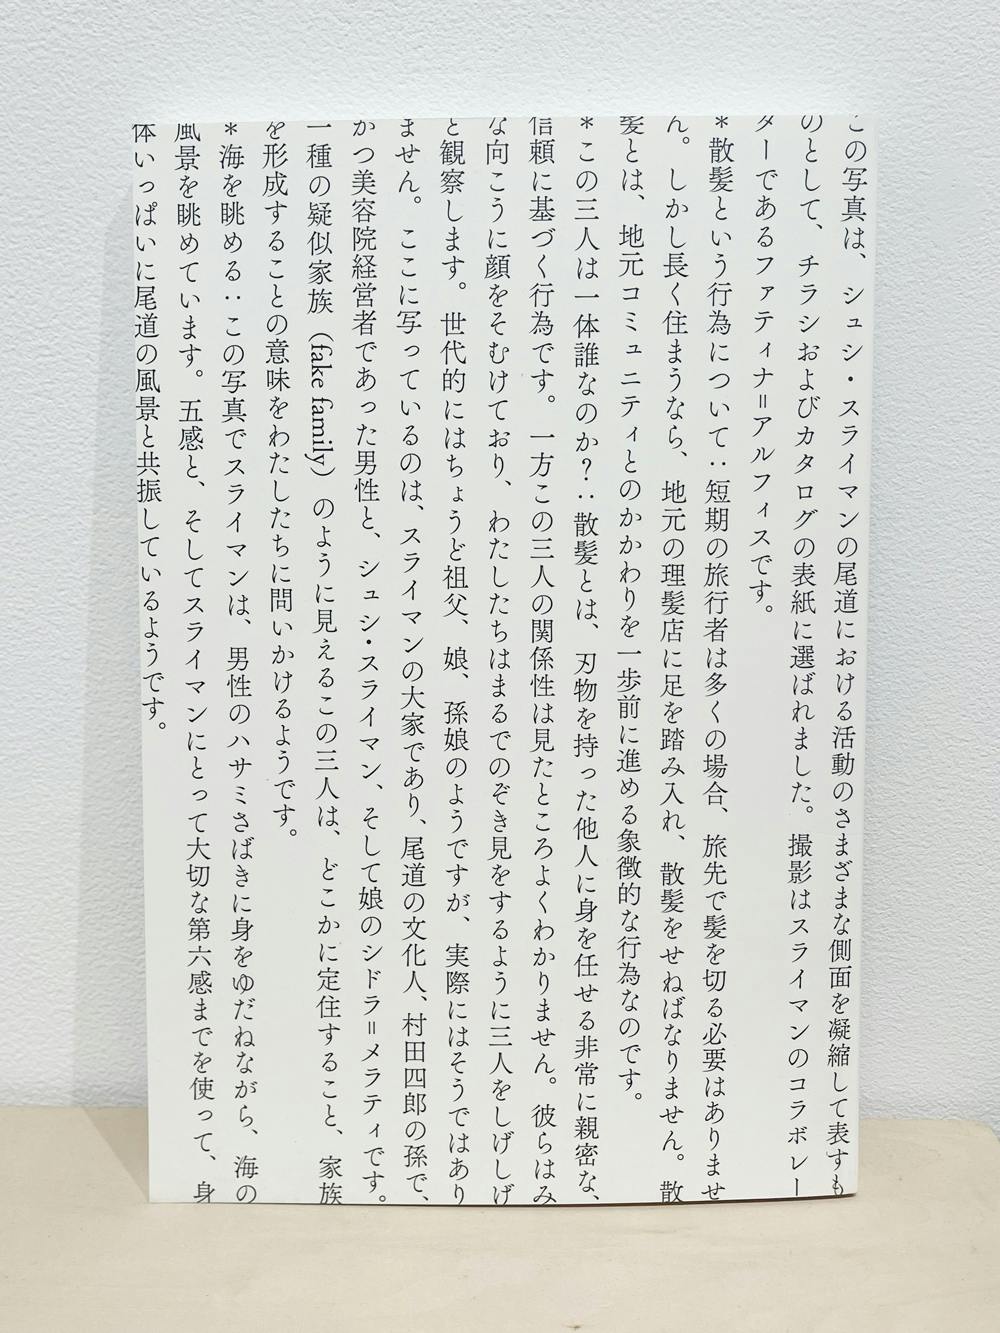 この写真は、シュシ・スライマンの尾道における活動のさまざまな側面を凝縮して表すも
のとして、チラシおよびカタログの表紙に選ばれました。撮影はスライマンのコラボレー
ターであるファティナ＝アルフィスです。
＊散髪という行為について：短期の旅行者は多くの場合、旅先で髪を切る必要はありませ
ん。しかし長く住まうなら、地元の理髪店に足を踏み入れ、散髪をせねばなりません。散
髪とは、地元コミュニティとのかかわりを一歩前に進める象徴的な行為なのです。
＊この三人は一体誰なのか？：散髪とは、刃物を持った他人に身を任せる非常に親密な、
信頼に基づく行為です。一方この三人の関係性は見たところよくわかりません。彼らはみ
な向こうに顔をそむけており、わたしたちはまるでのぞき見をするように三人をしげしげ
と観察します。世代的にはちょうど祖父、娘、孫娘のようですが、実際にはそうではあり
ません。ここに写っているのは、スライマンの大家であり、尾道の文化人、村田四郎の孫で、
かつ美容院経営者であった男性と、シュシ・スライマン、そして娘のシドラ＝メラティです。
一種の疑似家族（fake family）のように見えるこの三人は、どこかに定住すること、家族
を形成することの意味をわたしたちに問いかけるようです。
＊海を眺める：この写真でスライマンは、男性のハサミさばきに身をゆだねながら、海の
風景を眺めています。五感と、そしてスライマンにとって大切な第六感までを使って、身
体いっぱいに尾道の風景と共振しているようです。